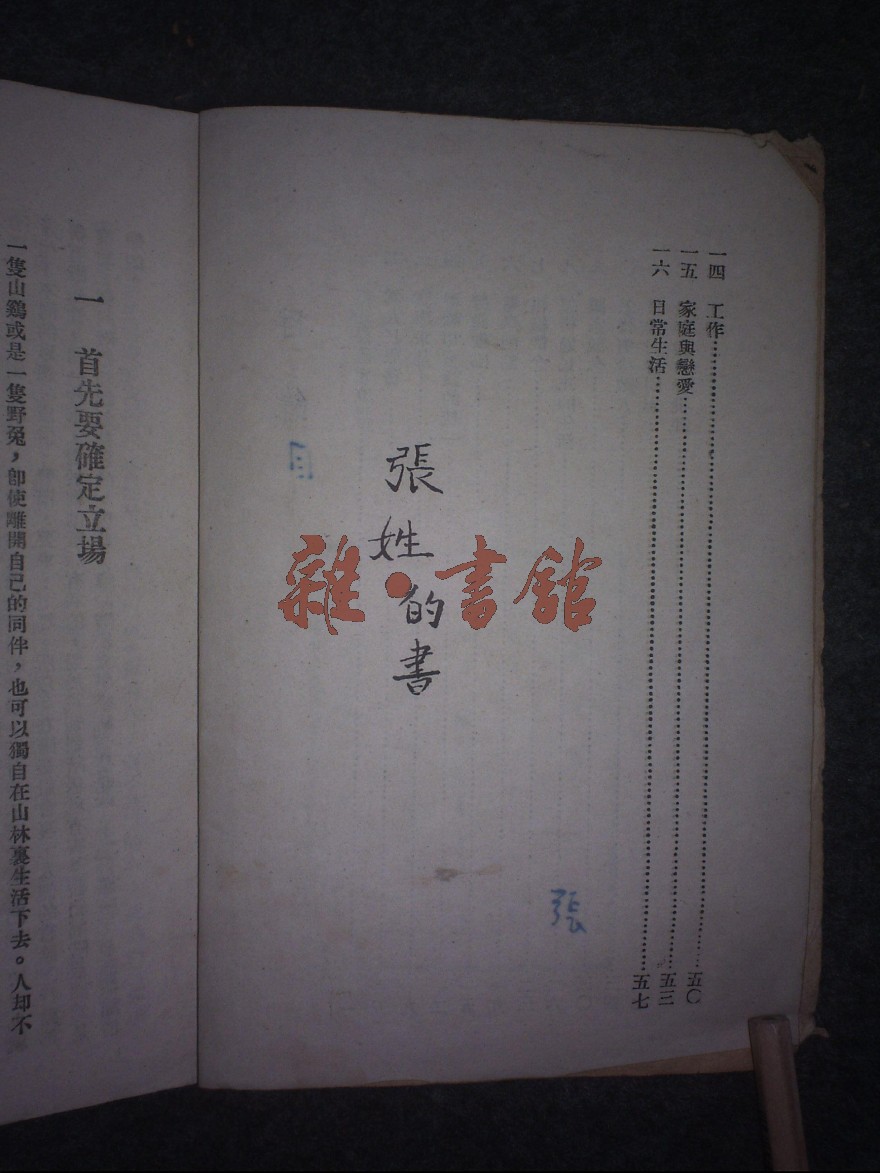 一四　工作……………………五〇
一五　家庭與戀愛……………………五三
一六　日常生活……………………五七
張姓的書
雜·書館
張
目
一　首先要確定立場
一隻山鷄或是一隻野兔，卽使離開自己的同伴，也可以獨自在山林裏生活下去。人却不